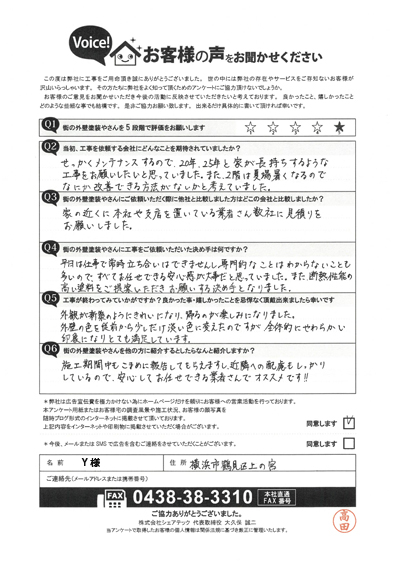 Voice!
お客様の声をお聞かせください
この度は弊社に工事をご用命頂き誠にありがとうございました。 世の中には弊社の存在やサービスをご存知ないお客様が
沢山いらっしゃいます。 その方たちに弊社をよく知って頂くためのアンケートにご協力頂けないでしょうか。
お客様のご意見をお聞かせいただき今後の活動に反映させていただきたいと考えております。 良かったこと、嬉しかったこと
どのような些細な事でも結構です。 是非ご協力お願い致します。 出来るだけ具体的に書いて頂ければ幸いです。
Q1 街の外壁塗装やさんを5段階で評価をお願いします ☆ ☆ ☆ ☆ ★
Q2 当初、工事を依頼する会社にどんなことを期待されていましたか?
せっかくメンテナンスするので、20年、25年と家が長持ちするような
工事をお願いしたいと思っていました。また、2階は夏場暑くなるので
なにか改善できる方法がないかと考えていました。
Q3 街の外壁塗装やさんにご依頼いただく際に他社と比較しました方はどこの会社と比較しましたか?
家の近くに本社や支店を置いている業者さん数社に見積りを
お願いしました。
Q4 街の外壁塗装やさんに工事をご依頼いただいた決め手は何ですか?
平日は仕事で常時立ち合いはできませんし、専門的なことはわからないことも
多いので、すべてお任せできる安心感が大事だと思っていました。また、断熱性能の
高い塗料をご提案いただきお願いする決め手となりました。
Q5 工事が終わってみていかがですか?良かった事・嬉しかったことを忌憚なく頂戴出来ましたら幸いです
外観が新築のようにきれいになり、帰るのが楽しみになりました。
外壁の色を従前から少しだけ淡い色に変えたのですが、全体的にやわらかい
印象になりとても満足しています。
Q6 街の外壁塗装やさんを他の方に紹介するとしたらなんと紹介しますか?
施工期間中もこまめに報告してもらえますし、近隣への配慮もしっかり
しているので、安心してお任せできる業者さんでオススメです!!
＊弊社は広告宣伝費を極力かけない為にホームページだけを頼りにお客様への営業活動を行っております。
本アンケート用紙またはお客様宅の調査風景や施工状況、お客様の顔写真を
随時ブログ形式のインターネットに掲載させて頂いております。
上記内容をインターネットや印刷物に掲載させていただく場合がございます。
同意します ☑
＊今後、メールまたはSMSで広告を含むご連絡をさせていただくことがございます。 同意します □
名前 Y様 住所 横浜市鶴見区上の宮
ご連絡先(メールアドレスまたは携帯番号)
FAX 0438-38-3310 本社直通 FAX番号
ご協力ありがとうございました。
株式会社シェアテック 代表取締役 大久保 誠二
当アンケートで取得したお客様の個人情報は関係法規に基づき厳正に管理いたします。
高田